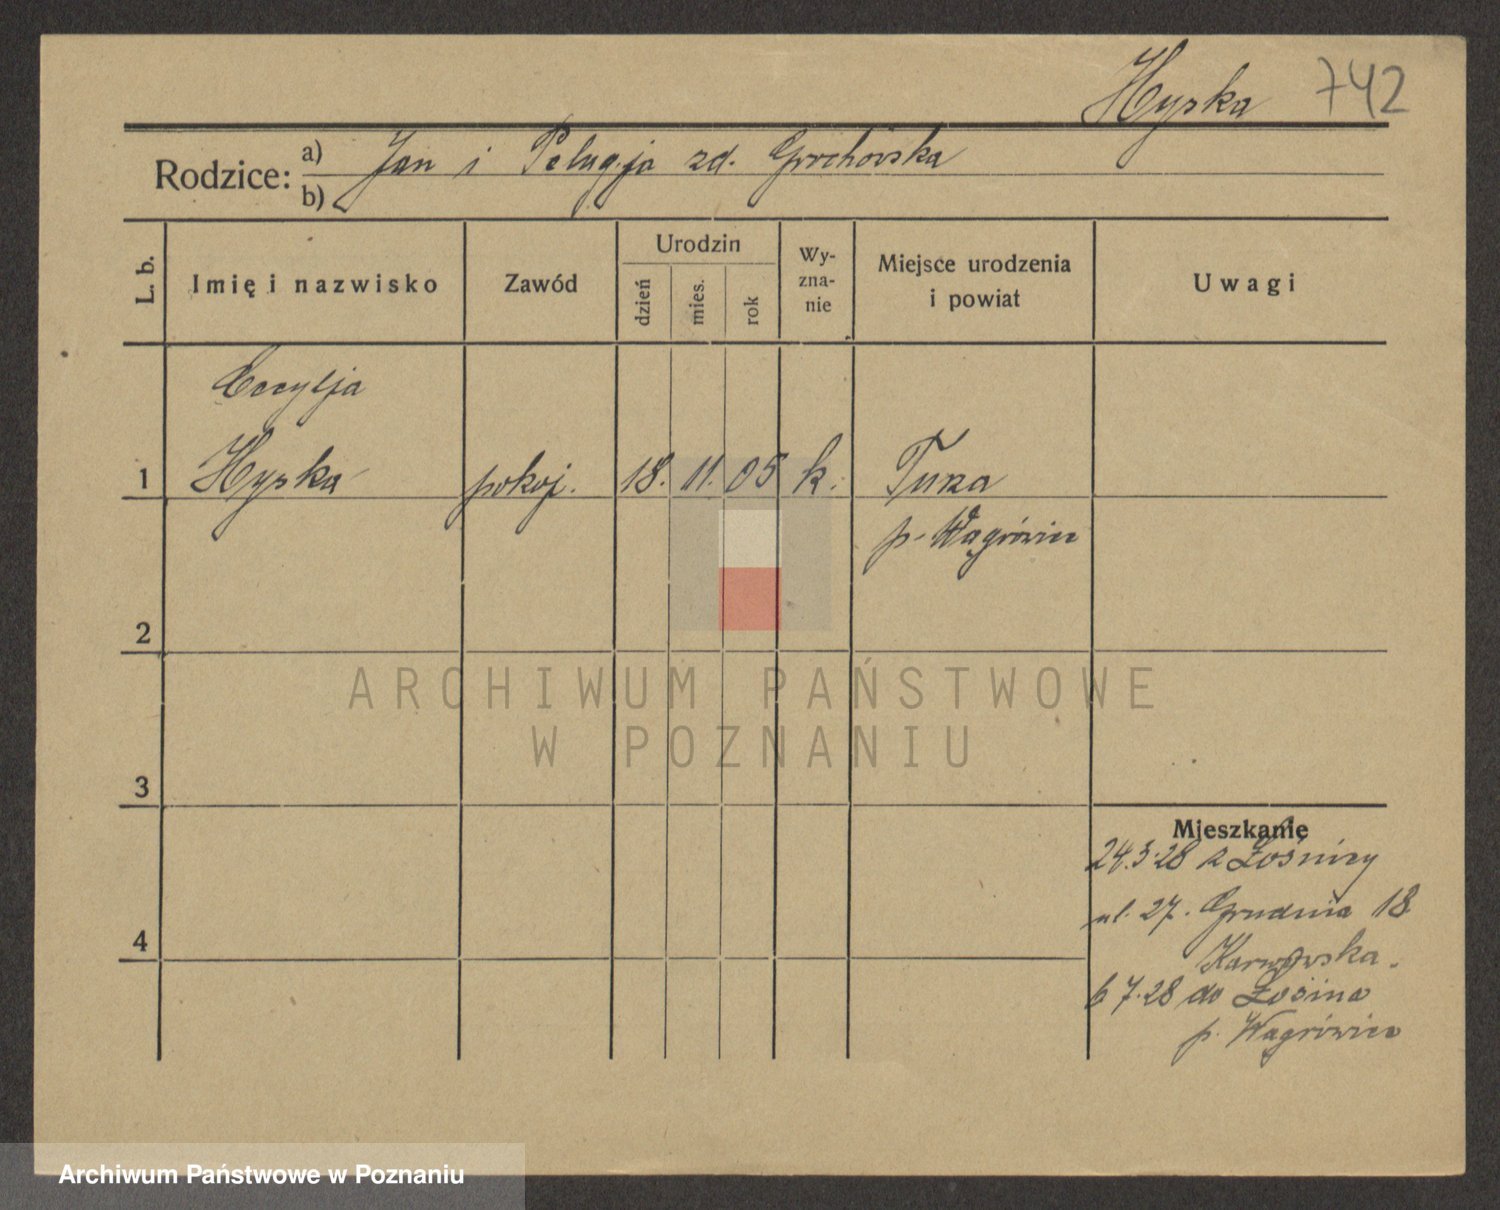 Hyska 742
Rodzice: a) Jan i Pelagja zd. Grochowska
b)
L. b. Imię i nazwisko Zawód Urodzin dzień mies. rok Wy-zna-nie Miejsce urodzenia i powiat Uwagi
Cecylja
1 Hyska pokoj. 18. 11. 05 k. Tura
p. Wągrówiec
2
3
Mieszkanie
24.5.28 z Łośnicy
ul. 27. Grudnia 18
4
Karwowska.
6 7.28 do Łosina
p. Wągrówiec
ARCHIWUM PAŃSTWOWE
W POZNANIU
Archiwum Państwowe w Poznaniu